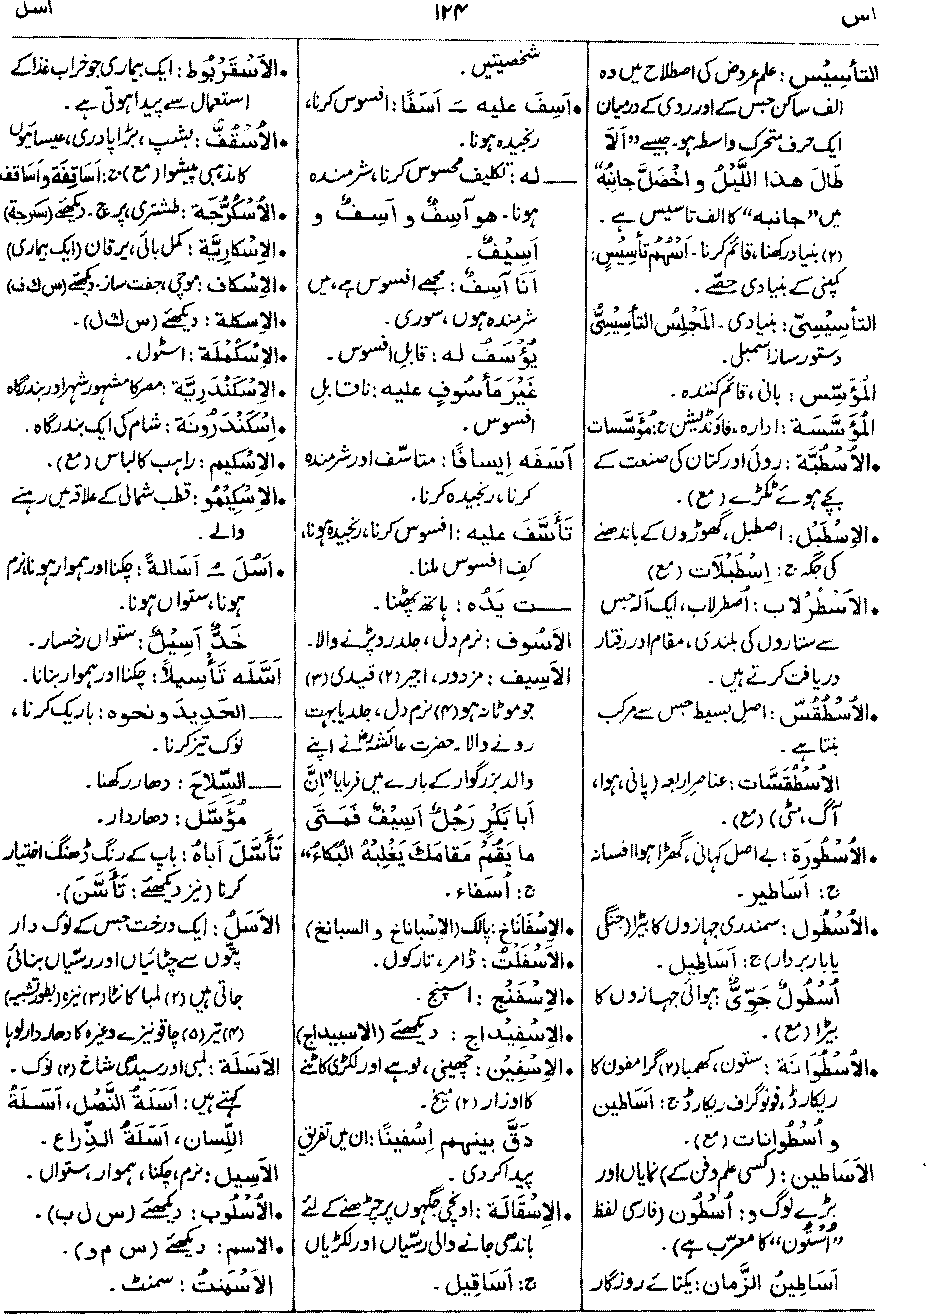 اس
۱۲۴
اسل
التأسِیْس : علم عروض کی اصطلاح میں وہ
الف ساکن جس کے اور روی کے درمیان
ایک حرف متحرک واسطہ ہو۔ جیسے ”اَلَا
طَالَ هٰذا اللَّیْلُ و اخْضَلَّ جانِبُهٗ“
میں ”جانبہ“ کا الف تاسیس ہے ۔
(۲) بنیاد رکھنا، قائم کرنا ۔ اَسْهُم تأسِیْسٍ :
کمپنی کے بنیادی حصّے ۔
التأسِیْسِیّ : بنیادی ۔ المَجْلِسُ التأسِیْسِیُّ
دستور ساز اسمبلی ۔
المُؤسِّس : بانی، قائم کنندہ ۔
المُؤسَّسَة : ادارہ، فاؤنڈیشن ج: مُؤسَّسات
•الأُسْطُبَّة : روئی اور کتان کی صنعت کے
بچے ہوئے ٹکڑے (مع)۔
•الإسْطَبْل : اصطبل، گھوڑوں کے باندھنے
کی جگہ ج: إسْطَبْلَات (مع)
•الأَسْطُرْلَاب : اُصطرلاب، ایک آلہ جس
سے ستاروں کی بلندی، مقام اور رفتار
دریافت کرتے ہیں ۔
•الأُسْطُقُسّ : اصل بسیط جس سے مرکب
بنتا ہے ۔
الأُسْطُقُسَّات : عناصر اربعہ (پانی، ہوا،
آگ، مٹی) (مع)۔
•الأُسْطُورَة : بے اصل کہانی، گھڑا ہوا افسانہ
ج: أسَاطیر ۔
•الأُسْطُول : سمندری جہازوں کا بیڑا (جنگی
یا باربردار) ج: أسَاطِیل ۔
أُسْطُولٌ جَوِّیٌّ : ہوائی جہازوں کا
بیڑا (مع)۔
•الأُسْطُوَانَة : ستون، کھمبا (۲) گراموفون کا
ریکارڈ، فونوگراف ریکارڈ ج: أسَاطِین
و أُسْطُوانات (مع)۔
الأسَاطِین : (کسی علم و فن کے) نمایاں اور
بڑے لوگ و: أُسْطُون (فارسی لفظ
”اُسْتُون“ کا معرّب ہے)۔
أسَاطِینُ الزَّمان : یکتائے روزگار
شخصیتیں ۔
•أسِفَ علیه ـَ أسَفًا : افسوس کرنا،
رنجیدہ ہونا ۔
ـــ له : تکلیف محسوس کرنا، شرمندہ
ہونا ۔ هو آسِفٌ و أسِفٌ و
أسِیْفٌ ۔
أنَا آسِفٌ : مجھے افسوس ہے، میں
شرمندہ ہوں، سوری ۔
یُؤسَفُ له : قابلِ افسوس ۔
غَیْرَ مَأسُوفٍ علیه : ناقابلِ
افسوس ۔
آسَفَه إیسافًا : متاسّف اور شرمندہ
کرنا، رنجیدہ کرنا ۔
تَأَسَّفَ علیه : افسوس کرنا، رنجیدہ ہونا،
کفِ افسوس ملنا ۔
ـــت یَدُه : ہاتھ پھٹنا ۔
الأسُوف : نرم دل، جلد رو پڑنے والا ۔
الأسِیف : مزدور، اجیر (۲) قیدی (۳)
جو موٹا نہ ہو (۴) نرم دل، جلد یا بہت
رونے والا ۔ حضرت عائشہؓ نے اپنے
والد بزرگوار کے بارے میں فرمایا ”إنَّ
أبا بَكْرٍ رَجُلٌ أسِیفٌ فَمَتَی
ما یَقُمْ مَقَامَكَ یَغْلِبْهُ البُکَاءُ“
ج: أُسَفاء ۔
•الإسْفَانَاخ : پالک (الإسْبَاناخ و السبانخ)
•الأسْفَلْت : ڈامر، تارکول ۔
•الإسْفَنْج : اسپنج ۔
•الإسْفِیْدَاج : دیکھئے (الاسبیداج)
•الإسْفِیْن : چھینی، لوہے اور لکڑی کاٹنے
کا اوزار (۲) میخ ۔
دَقَّ بینهم إسْفِینًا : ان میں تفریق
پیدا کر دی ۔
•الإسْقَالَة : اونچی جگہوں پر چڑھنے کے لئے
باندھی جانے والی رسّیاں اور لکڑیاں
ج: أسَاقیل ۔
•الأسْقَرْبُوط : ایک بیماری جو خراب غذا کے
استعمال سے پیدا ہوتی ہے ۔
•الأُسْقُفّ : بشپ، بڑا پادری، عیسائیوں
کا مذہبی پیشوا (مع) ج: أسَاقِفَة و أسَاقف
•الأُسْكُرُّجَة : طشتری، پرچ ۔ دیکھئے (سکرجة)
•الإسْکَارِیَّة : کمل بائی، یرقان (ایک بیماری)
•الإسْکَاف : موچی، جفت ساز ۔ دیکھئے (س ك ف)
•الإسكلة : دیکھئے (س ك ل)۔
•الإسْکَمْلَة : اسٹول ۔
•الإسْکَنْدَرِیَّة : مصر کا مشہور شہر اور بندرگاہ
•إسْکَنْدَرُونَة : شام کی ایک بندرگاہ ۔
•الإسْکِیم : راہب کا لباس (مع)۔
•الإسْکِیْمُو : قطب شمالی کے علاقہ میں رہنے
والے ۔
•أسُلَ ـُ أسَالةً : چکنا اور ہموار ہونا، نرم
ہونا، ستواں ہونا ۔
خَدٌّ أسِیْلٌ : ستواں رخسار ۔
أسَّلَه تَأسِیلًا : چکنا اور ہموار بنانا ۔
ـــ الحَدِیدَ و نحوه : باریک کرنا،
نوک تیز کرنا ۔
ـــ السِّلَاحَ : دھار رکھنا ۔
مُؤَسَّل : دھاردار ۔
تَأَسَّلَ أبَاهُ : باپ کے رنگ ڈھنگ اختیار
کرنا (نیز دیکھئے : تَأَسَّنَ)۔
الأَسَلُ : ایک درخت جس کے نوک دار
پتّوں سے چٹائیاں اور رسّیاں بنائی
جاتی ہیں (۲) لمبا کانٹا (۳) نیزہ (بطور تشبیہ)
(۴) تیر (۵) چاقو نیزے وغیرہ کا دھاردار لوہا
الأَسَلَة : لمبی اور سیدھی شاخ (۲) نوک ۔
کہتے ہیں : أسَلَةُ النَّصْل، أسَلَةُ
اللِّسان، أسَلَةُ الذِّرَاع ۔
الأسِیل : نرم، چکنا، ہموار، ستواں ۔
•الأُسْلُوب : دیکھئے (س ل ب)۔
•الاسم : دیکھئے (س م و)۔
الأسْمَنْتُ : سمنٹ ۔